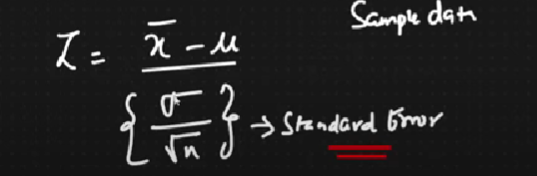 Sample data
Z = x̄ - μ
{ σ / √n } → Standard Error